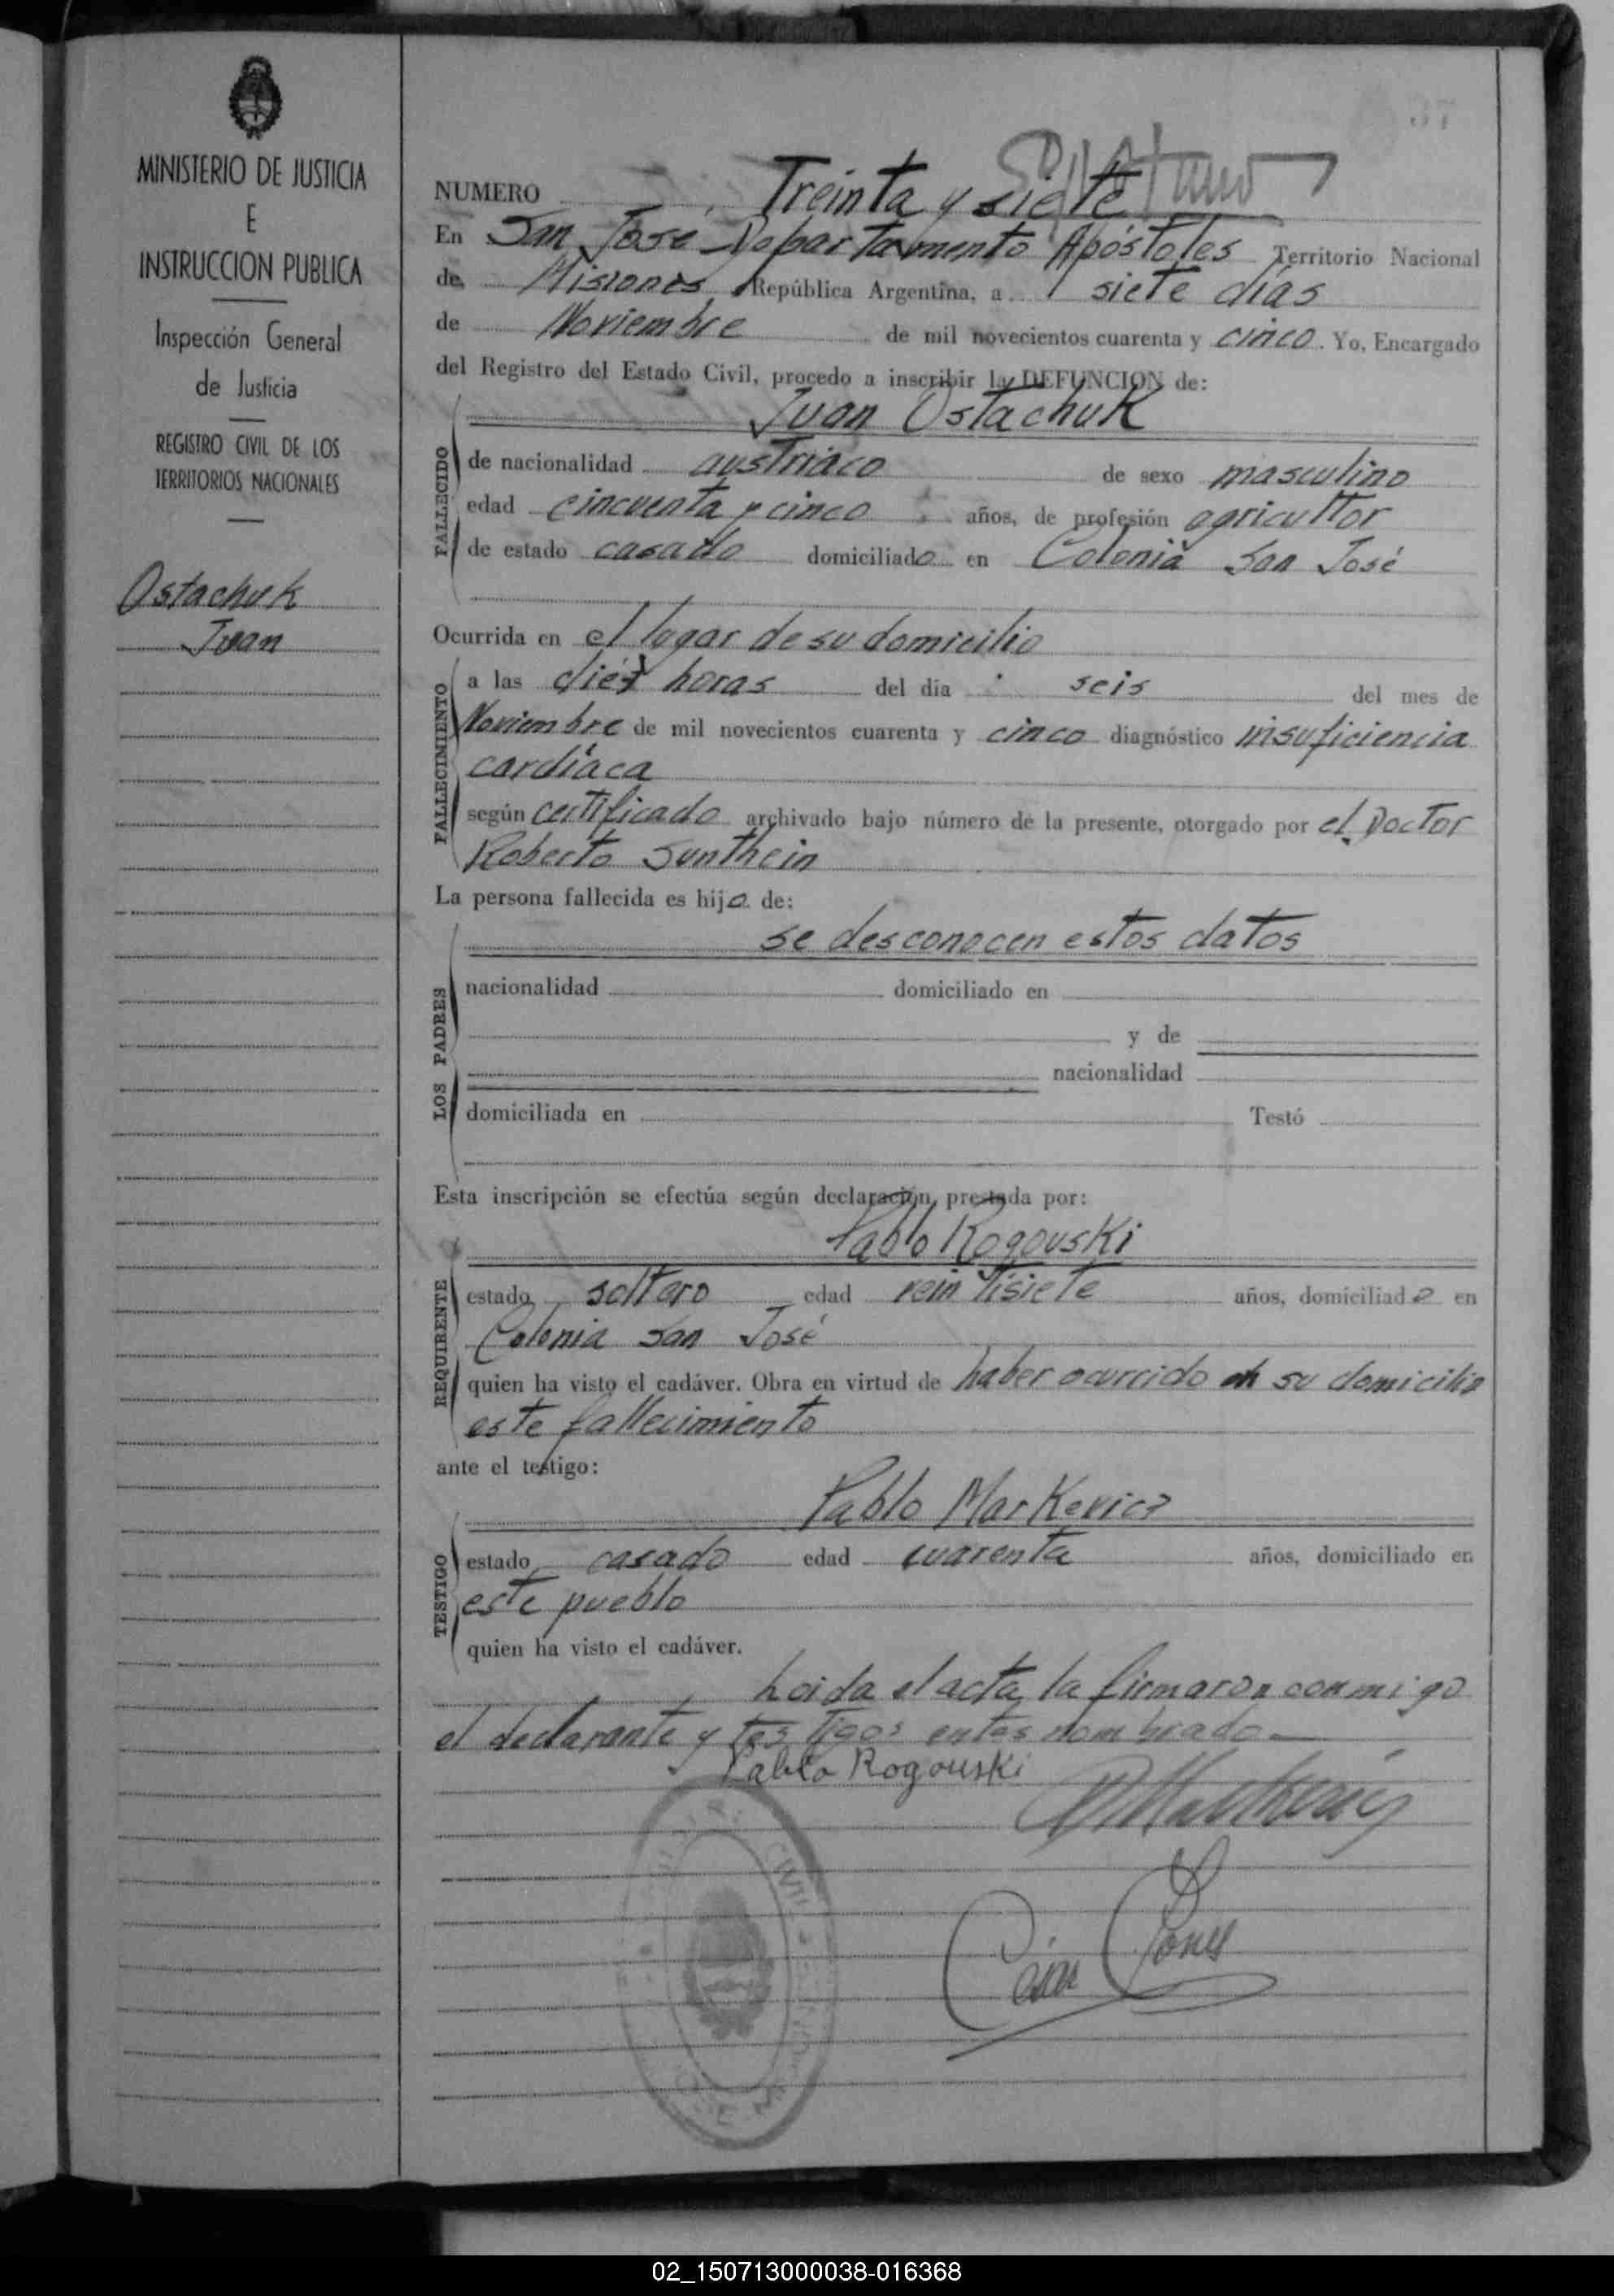 MINISTERIO DE JUSTICIA
E
INSTRUCCION PUBLICA
Inspección General
de Justicia
REGISTRO CIVIL DE LOS
TERRITORIOS NACIONALES
Ostachuk
Juan
NUMERO Treinta y siete
En San José Departamento Apóstoles Territorio Nacional
de Misiones República Argentina, a siete días
de Noviembre de mil novecientos cuarenta y cinco. Yo, Encargado
del Registro del Estado Civil, procedo a inscribir la DEFUNCION de:
Juan Ostachuk
FALLECIDO
de nacionalidad austriaco de sexo masculino
edad cincuenta y cinco años, de profesión agricultor
de estado casado domiciliado en Colonia San José
Ocurrida en el lugar de su domicilio
FALLECIMIENTO
a las diéz horas del día seis del mes de
Noviembre de mil novecientos cuarenta y cinco diagnóstico insuficiencia
cardíaca
según certificado archivado bajo número de la presente, otorgado por el Doctor
Roberto Sunthein
La persona fallecida es hijo de:
se desconocen estos datos
LOS PADRES
nacionalidad domiciliado en
y de
nacionalidad
domiciliada en Testó
Esta inscripción se efectúa según declaración, prestada por:
Pablo Rogouski
REQUIRENTE
estado soltero edad veintisiete años, domiciliado en
Colonia San José
quien ha visto el cadáver. Obra en virtud de haber ocurrido en su domicilio
este fallecimiento
ante el testigo:
Pablo Markevicz
TESTIGO
estado casado edad cuarenta años, domiciliado en
este pueblo
quien ha visto el cadáver.
Leida el acta, la firmaron conmigo
el declarante y testigos antes nombrado
Pablo Rogouski
02_150713000038-016368